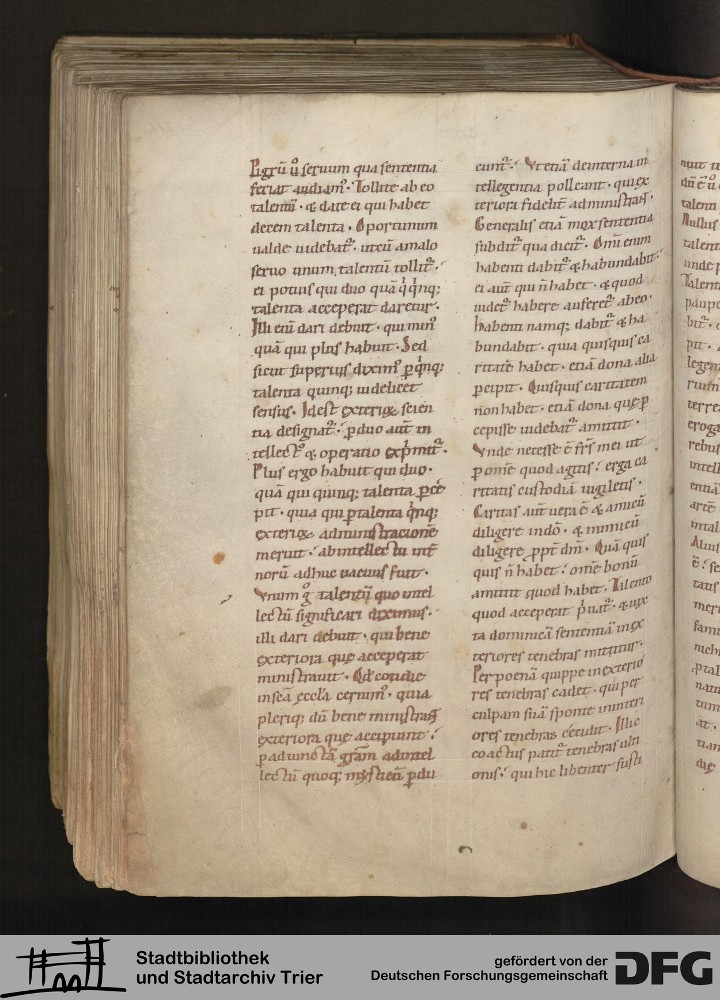 Pigrũ ů seruum qua sententia
feriat audiamꝰ. Tollite ab eo
talentũ. & date ei qui habet
decem talenta. Oportunum
ualde uidebat᷑. ut cũ a malo
seruo unum talentũ tollit᷑.
ei potius qui duo quã q̇ q̇nq;
talenta acceperat daretur.
Illi eñ dari debuit. qui minꝰ
quã qui plus habuit. Sed
sicut superius diximꝰ p̱ q̇nq;
talenta quinq; uidelicet
sensus. Idest exterioꝝ scien
tia designat᷑. p̱ duo aut̃ in
tellectꝰ & operatio exp̃mit᷑.
Plus ergo habuit qui duo.
quã qui quinq; talenta p̱ce
pit. quia qui p̱ talenta q̇nq;
exterioꝝ administracionẽ
meruit. ab intellectu int̃
norũ adhuc uacuus fuit.
Vnum g̊ talentũ quo intel
lectũ significari diximus.
illi dari debuit. qui bene
exteriora que acceperat
ministrauit. Qđ cotidie
in sc̃a eccl̃a cernimꝰ. quia
pleriq; dũ bene ministrant
exteriora que accipiunt.
p̱ adiunctã gr̃am ad intel
lectũ quoq; mysticũ p̱du
cunt᷑. Vt etiã de interna in
tellegentia polleant. qui ex
teriora fidelit̃ administrant.
Generalis etiã mox sententia
subdit᷑ qua dicit᷑. Om̃i enim
habenti dabit᷑ & habundabit.
ei aut̃ qui ñ habet. & quod
uidet᷑ habere auferet᷑ ab eo.
Habenti namq; dabit᷑ & ha
bundabit. quia quisquis ca
ritatẽ habet. etiã dona alia
p̱cipit. Quisquis caritatem
non habet. etiã dona que p̱
cepisse uidebat᷑ amittit.
Vnde necesse ẽ fr̃s mei ut
p̱ om̃e quod agitis. erga ca
ritatis custodiã uigiletis.
Caritas aut̃ uera ẽ & amicũ
diligere in dõ. & inimicũ
diligere ꝓpt̃ dm̃. Quã quis
quis ñ habet. om̃e bonũ
amittit quod habet. Talento
quod acceperat p̃uat᷑. & iux
ta dominicã sententiã in ex
teriores tenebras mittitur.
Per poenã quippe in exterio
res tenebras cadet. qui per
culpam suã sponte in interi
ores tenebras cecidit. Illic
coactus patit᷑ tenebras ulti
onis. qui hic libenter susti
Stadtbibliothek
und Stadtarchiv Trier
gefördert von der
Deutschen Forschungsgemeinschaft
DFG